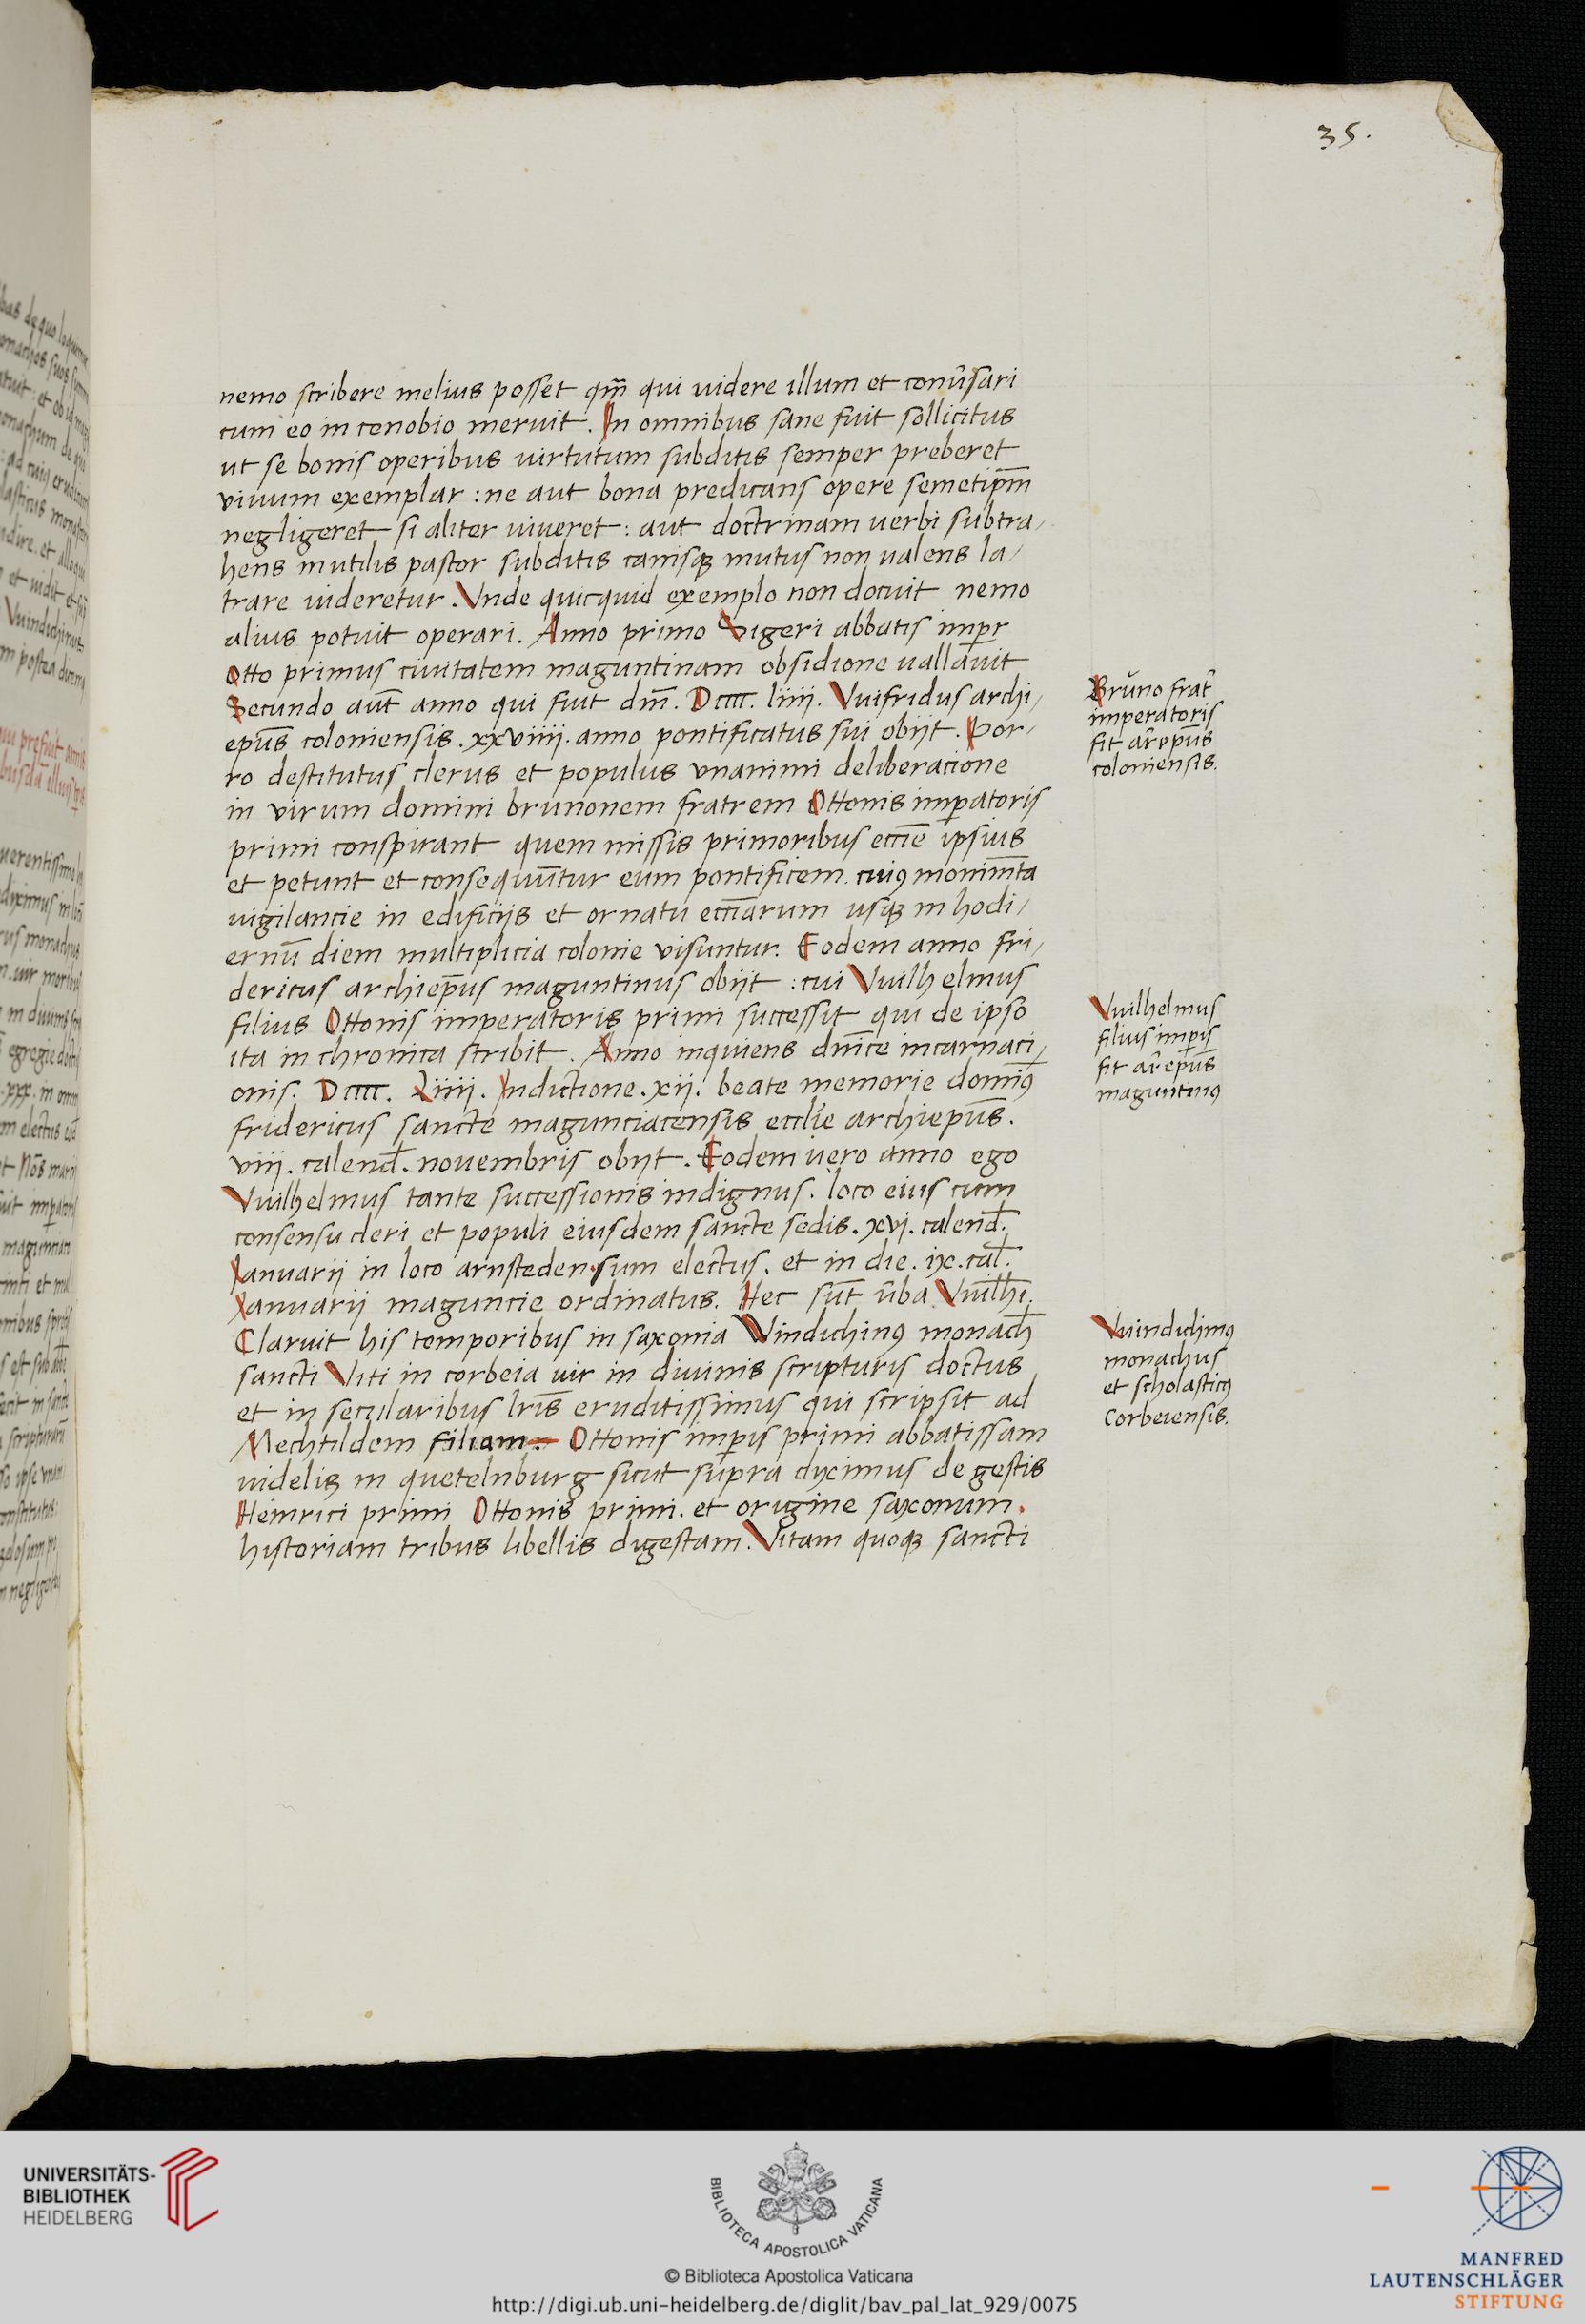 35.
nemo scribere melius posset qm̄ qui uidere illum et conūsari
cum eo in cenobio meruit. In omnibus sane fuit sollicitus
ut se bonis operibus uirtutum subditis semper preberet
viuum exemplar: ne aut bona predicans opere semetip̄m
negligeret si aliter uiueret: aut doctrinam uerbi subtra/
hens inutilis pastor subditis canisqꝫ mutus non ualens la/
trare uideretur. Vnde quicquid exemplo non docuit nemo
alius potuit operari. Anno primo Sigeri abbatis imper
Otto primus ciuitatem maguntinam obsidione uallauit
Secundo aut̄ anno qui fuit dm̄. Dcccc. liiii. Vuifridus archi/
ep̄us coloniensis. xxviiii. anno pontificatus sui obijt. Por/
ro destitutus clerus et populus vnanimi deliberacione
in virum domini brunonem fratrem Ottonis imp̄atoris
primi conspirant quem missis primoribus ecc̄ie ipsius
et petunt et consequūntur eum pontificem. cuiꝰ monim̄ta
uigilancie in edificijs et ornatu ecc̄iarum usqꝫ in hodi/
ernū diem multiplicia colonie visuntur. Eodem anno fri/
dericus archiep̄us maguntinus obijt: cui Vuilhelmus
filius Ottonis imperatoris primi successit qui de ipso
ita in chronica scribit. Anno inquiens dn̄ice incarnaci/
onis. Dcccc. Liiii. Indictione. xii. beate memorie domiꝰ
fridericus sancte magunciacensis eccl̄ie archiep̄us.
viii. calend̄. nouembris obijt. Eodem uero anno ego
Vuilhelmus tante successionis indignus. loco eius cum
consensu cleri et populi eiusdem sancte sedis. xvi. calend̄.
Ianuarij in loco arnsteden sum electus. et in die. ix. cal̄.
Ianuarii maguncie ordinatus. Hec sūt ūba Vuilh̄i.
Claruit his temporibus in saxonia Vuindichinꝰ monach̄
sancti Viti in corbeia uir in diuinis scripturis doctus
et in secularibus lr̄is eruditissimus qui scripsit ad
Mechtildem filiam. Ottonis imp̄is primi abbatissam
uidelis in quetelnburg sicut supra diximus de gestis
Heinrici primi Ottonis primi. et origine saxonum.
historiam tribus libellis digestam. Vitam quoqꝫ sancti
Brūno frat̄
imperatoris
fit ar̄ep̄us
coloniensis.
Vuilhelmus
filius imp̄is
fit ar̄ep̄us
maguntinꝰ
Vuindichinꝰ
monachus
et scholasticꝰ
Corbeiensis.
UNIVERSITÄTS-
BIBLIOTHEK
HEIDELBERG
BIBLIOTECA APOSTOLICA VATICANA
© Biblioteca Apostolica Vaticana
http://digi.ub.uni-heidelberg.de/diglit/bav_pal_lat_929/0075
MANFRED
LAUTENSCHLÄGER
STIFTUNG